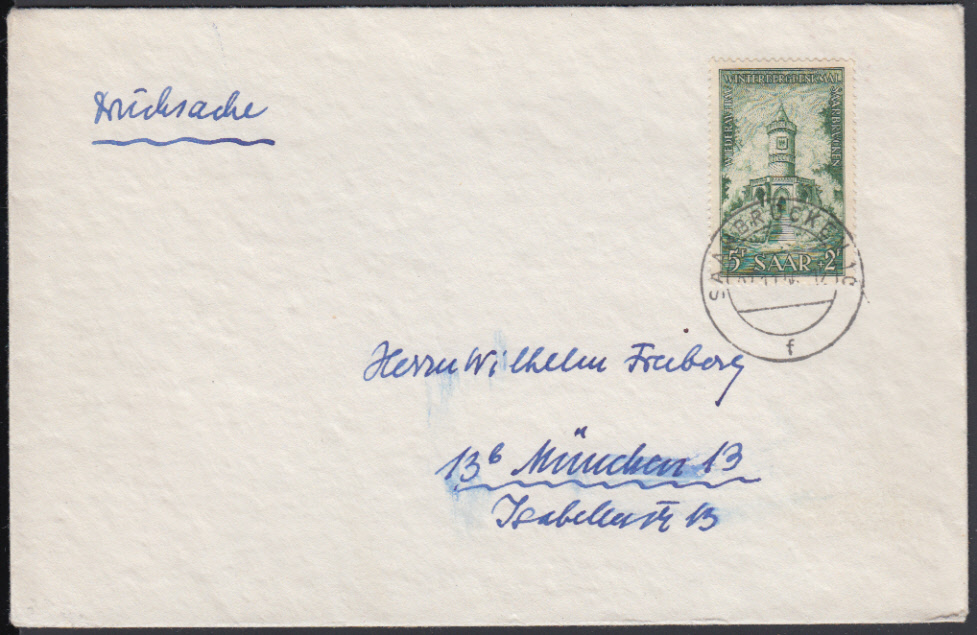 Drucksache
WIEDERAUFBAU WINTERBERGDENKMAL SAARBRÜCKEN
5F SAAR +2F
SAARBRÜCKEN
f
Herrn Wilhelm Freiberg
13b München 13
Isabellastr 13